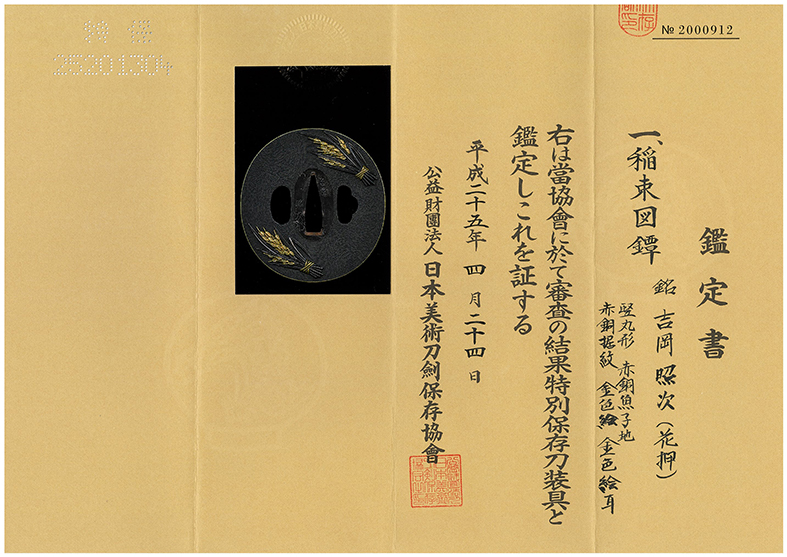 № 2000912
鑑定書
一、稲束図鐔
銘 吉岡照次(花押)
竪丸形 赤銅魚子地
赤銅据紋 金色絵 金色絵耳
右は當協會に於て審査の結果特別保存刀装具と
鑑定しこれを証する
平成二十五年 四月二十四日
公益財團法人 日本美術刀劍保存協會
25201304